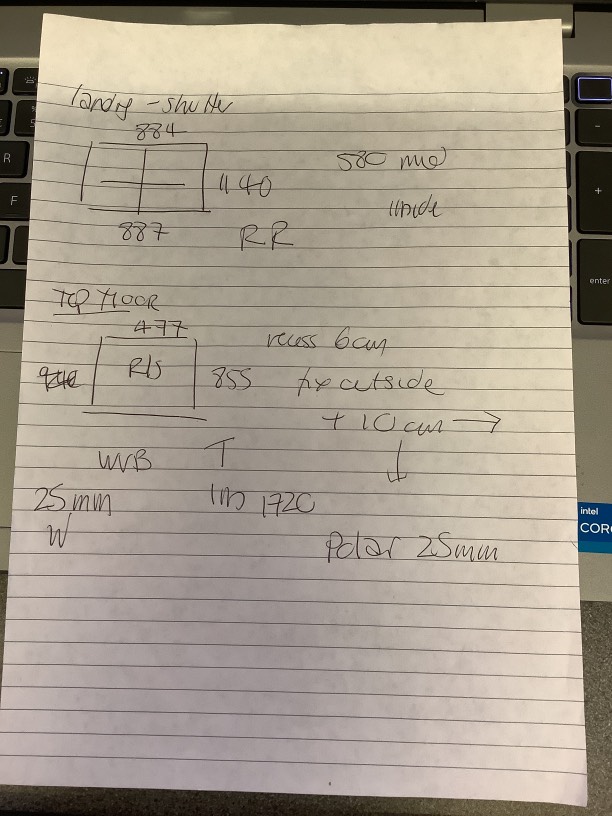 landing - shutter
884
580 mid
1140
inside
887
RR
TOP FLOOR
477
recess 6cm
R/S
855
fix outside
+ 10 cm →
↓
WVB
T
25mm
1720
W
Polar 25mm
R
F
-
+
enter
intel
CORE